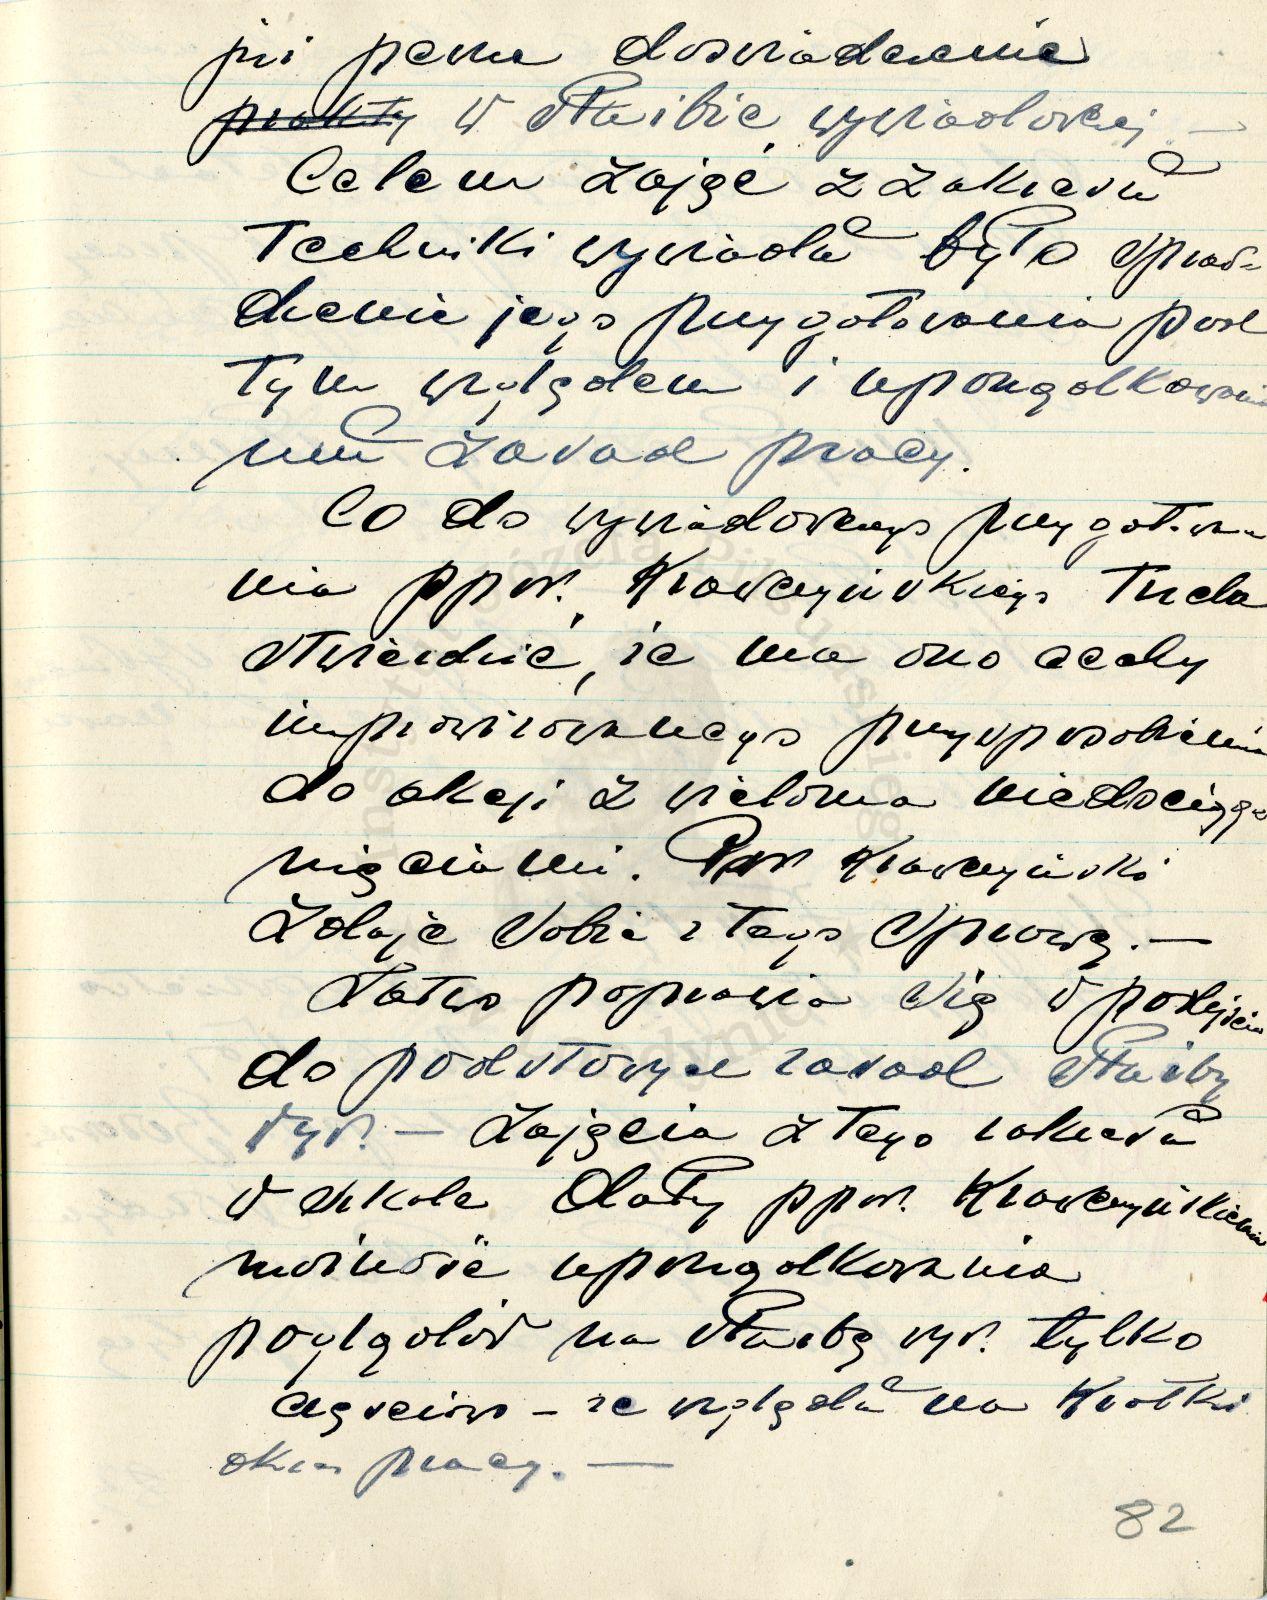 już pewne doświadczenie
prakty w służbie wywiadowczej —
Celem zajęć z zakresu
techniki wywiadu było spraw-
dzenie jego przygotowania pod
tym względem i uporządkowanie
mu zasad pracy.
Co do wywiadowczego przygotowa-
nia ppor. Krawczyńskiego trzeba
stwierdzić, że ma ono cechy
improwizowanego przysposobienia
do akcji z wieloma niedociąg-
nięciami. Por. Krawczyński
zdaje sobie z tego sprawę. —
Łatwo poprawia się w podejściu
do podstawowych zasad służby
wyw. — Zajęcia z tego zakresu
w szkole dały ppor. Krawczyńskiemu
możność uporządkowania
poglądów na służbę wyw. tylko
częściowo – ze względu na krótki
okres pracy. —
82
Instytut Józefa Piłsudskiego